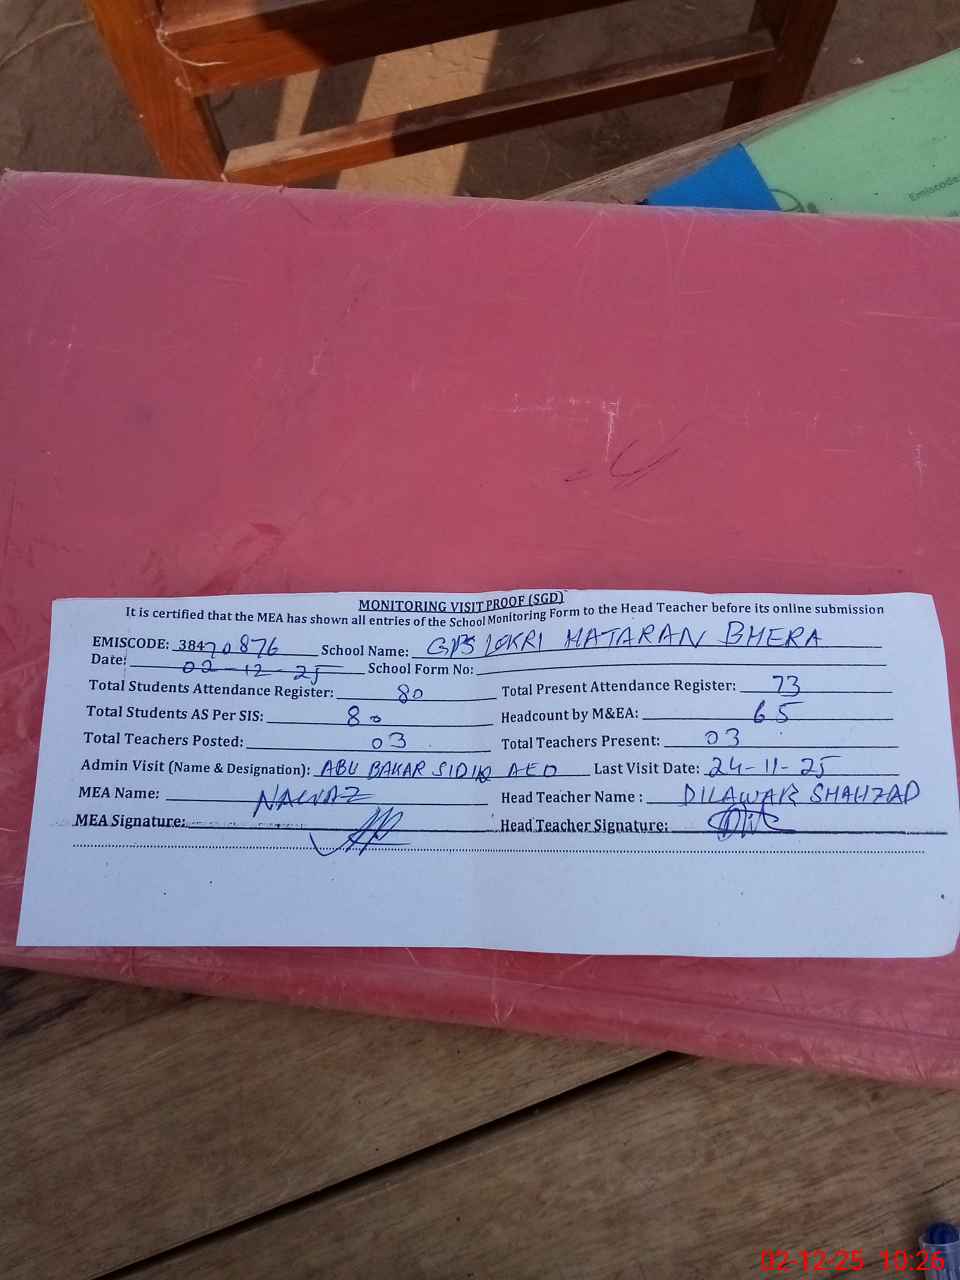 Emiscode
MONITORING VISIT PROOF (SGD)
It is certified that the MEA has shown all entries of the School Monitoring Form to the Head Teacher before its online submission
EMISCODE: 38470876 School Name: GPS LOKRI MATARAN BHERA
Date: 02-12-25 School Form No:
Total Students Attendance Register: 80 Total Present Attendance Register: 73
Total Students AS Per SIS: 80 Headcount by M&EA: 65
Total Teachers Posted: 03 Total Teachers Present: 03
Admin Visit (Name & Designation): ABU BAKAR SIDIQ AEO Last Visit Date: 24-11-25
MEA Name: NAWAZ Head Teacher Name : DILAWAR SHAHZAD
MEA Signature: Head Teacher Signature:
02-12-25 10:26